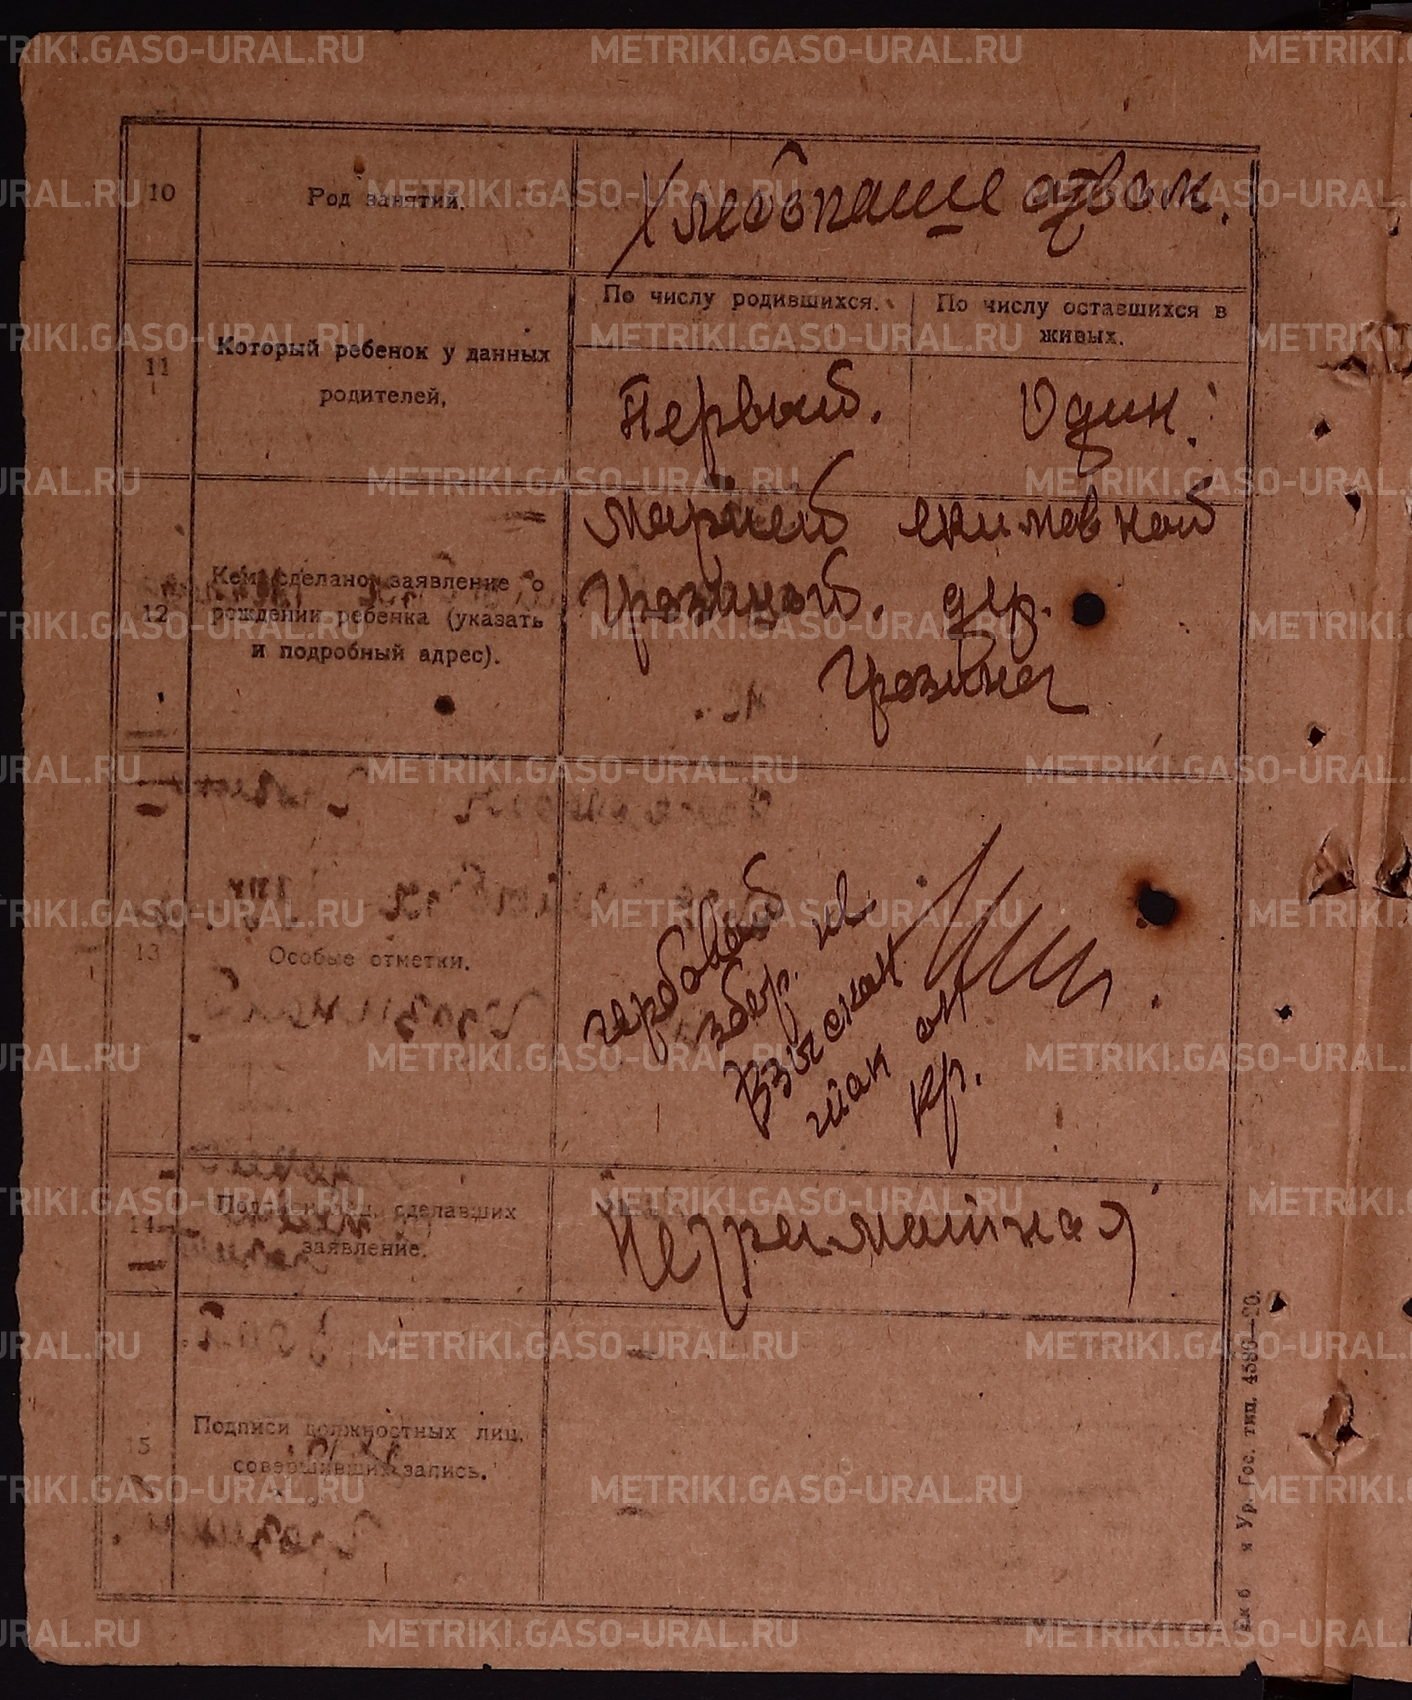 METRIKI.GASO-URAL.RU
10
Род занятий.
Хлебопашеством.
11
Который ребенок у данных
родителей,
По числу родившихся.
По числу оставшихся в
живых.
Первый.
Один.
12
Кем сделано заявление о
рождении ребенка (указать
и подробный адрес).
Марией екимовной
Грозиной. дер.
Грозина
13
Особые отметки.
гербовый
збор. не
взыскан
как от
кр.
14
Подписи лиц, сделавших
заявление.
Неграмотная
15
Подписи должностных лиц,
совершивших запись.
Ур. Гос. тип. 4586—20.